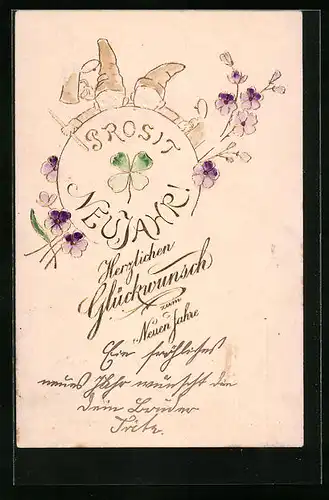 PROSIT
NEUJAHR!
Herzlichen
Glückwunsch
zum
Neuen Jahre
Ein fröhliches
neues Jahr wünscht dir
Dein Bruder
Fritz.